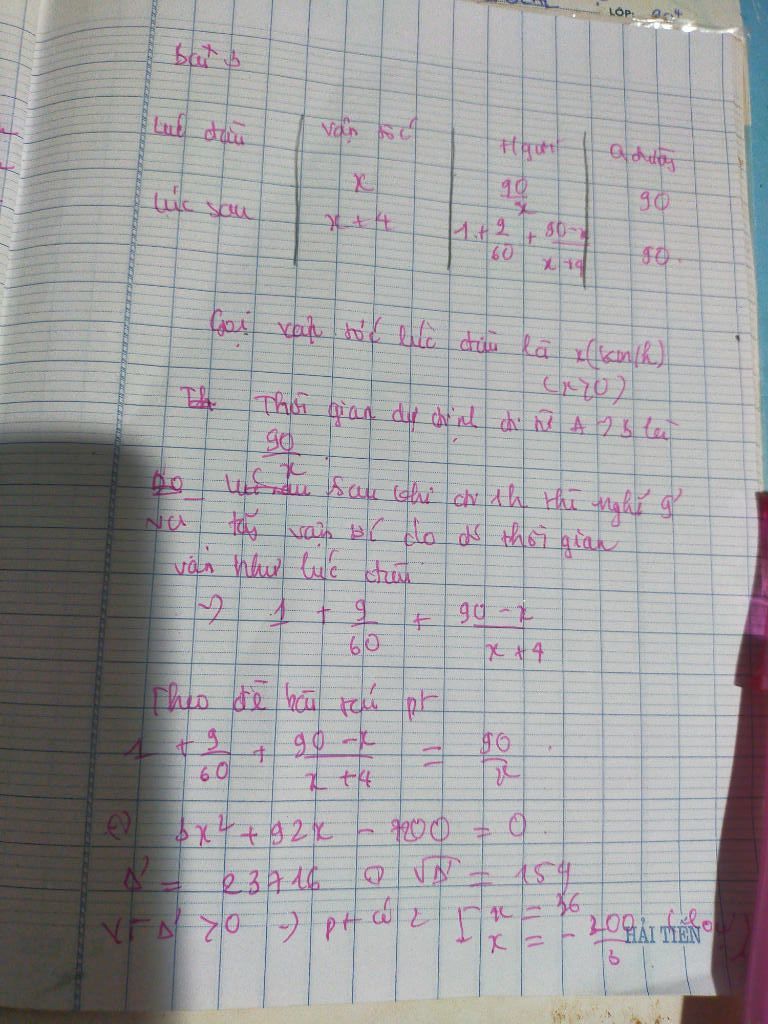 LỚP: 9c4
bài 5
Lúc đầu | vận tốc | t/gian | q đường
x | 90/x | 90
lúc sau | x + 4 | 1 + 9/60 + 90-x/x+4 | 90
Gọi vận tốc lúc đầu là x (km/h)
(x>0)
Thời gian dự định đi từ A → B là
90/x
sau khi đi 1h thì nghỉ 9'
và tăng vận tốc do đó thời gian
vẫn như lúc đầu
=> 1 + 9/60 + 90-x/x+4
Theo đề bài ta có pt
1 + 9/60 + 90-x/x+4 = 90/x
3x² + 92x - 7200 = 0
Δ' = 23716 √Δ' = 154
Vì Δ' > 0 → pt có 2 [ x = 36
x = - 200/3 (loại)
HẢI TIẾN